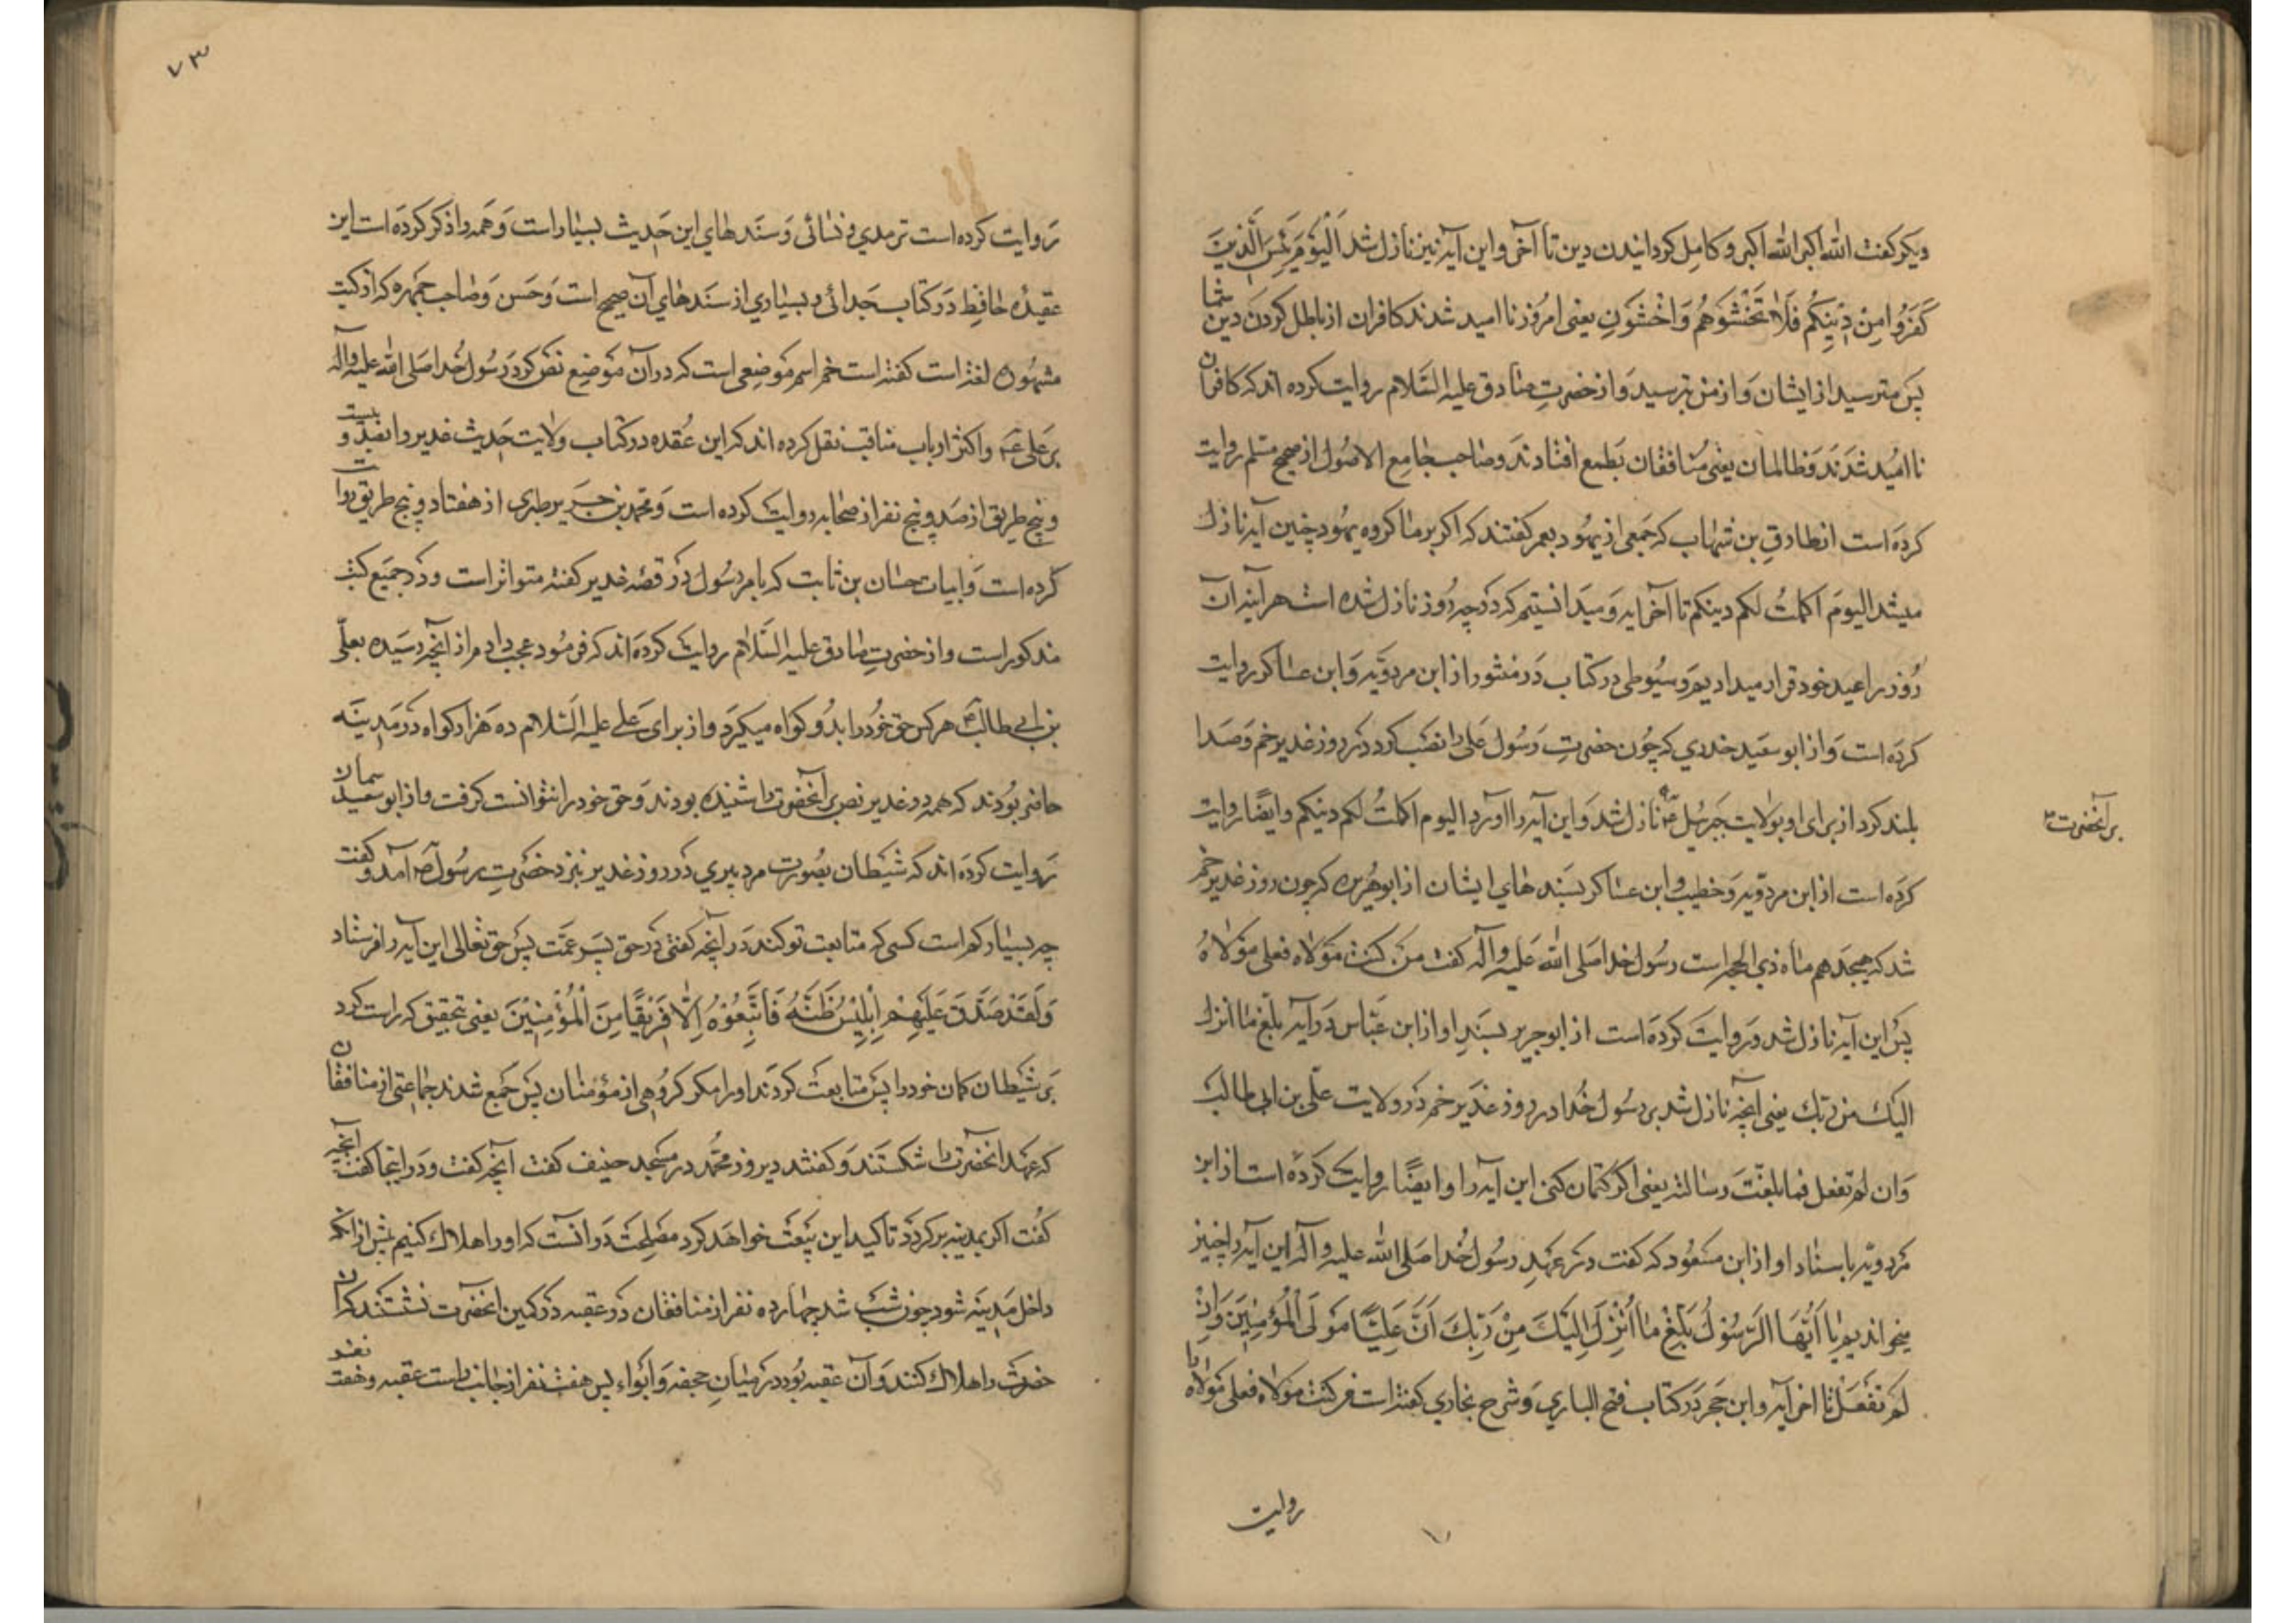 دیکر کفت الله اکبر الله اکبر و کامل کردانیدن دین تا آخر و این آیه نیز نازل شد اَلْیَوْمَ یَئِسَ الَّذِینَ
کَفَرُوا مِنْ دِینِکُم فَلَا تَخْشَوهُم وَاخْشَونِ یعنی امروز ناامید شدند کافران از باطل کردن دین شما
پس مترسید از ایشان و از من بترسید و از حضرت صادق علیه السّلام روایت کرده اند که کافران
ناامید شدند و ظالمان یعنی منافقان بطمع افتادند و صاحب جامع الاصول از صحیح مسلم روایت
کرده است از طارق بن شهاب که جمعی از یهود بعمر کفتند که اکر بر ما کروه یهود چنین آیه نازل
میشد الیوم اکملتُ لکم دینکم تا آخر ایه و میدانستیم که در چه روز نازل شده است هر آینه آن
روز را عید خود قرار میدادیم و سیوطی در کتاب در منثور از ابن مردویه و ابن عساکر روایت
کرده است و از ابو سعید خدری که چون حضرت رسول علی را نصب کرد در روز غدیر خم و صدا
بلند کرد از برای او بولایت جبرئیل نازل شد و این آیه را آورد الیوم اکملتُ لکم دینکم و ایضًا روایت
بر آنحضرت
کرده است از ابن مردویه و خطیب و ابن عساکر بسند های ایشان از ابو هریره که چون روز غدیر خم
شد که هیجدهم ماه ذی الحجه است رسول خدا صلی الله علیه و آله کفت من کنت مولاه فعلی مولاهُ
پس این آیه نازل شد و روایت کرده است از ابو جریر بسند او از ابن عباس در آیه بلّغ ما انزل
الیک من ربک یعنی آنچه نازل شد بر رسول خدا در روز غدیر خم در ولایت علّی بن ابی طالب
وان لم تفعل فما بلغت رسالته یعنی اکر کتمان کنی این آیه را و ایضًا روایت کرده است از ابن
مردویه باسناد او از ابن مسعود که کفت در عهد رسول خدا صلی الله علیه و آله این آیه را چنین
میخواندیم یا اَیُّهَا الرَّسُولُ بَلِّغْ ما اُنْزِلَ اِلَیْکَ مِنْ رَبِّکَ اَنَّ عَلِیًّا مَوْلَی الْمُؤْمِنِینَ وَاِنْ
لَمْ تَفْعَلْ تا اخر آیه و ابن حجر در کتاب فتح الباری و شرح بخاری کفته است من کنت مولاه فعلی مولاه را
روایت
۷۳
روایت کرده است ترمدی و نسائی و سندهای این حدیث بسیار است و همه را ذکر کرده است این
عقیده حافظ در کتاب جدائی و بسیاری از سندهای آن صحیح است و حسن و صاحب جمهره که از کتب
مشهوره لغة است کفته است خم اسم موضعی است که در آن موضع نص کرد رسول خدا صلی الله علیه و آله
بر علی و اکثر ارباب مناقب نقل کرده اند که این عقده در کتاب ولایت حدیث غدیر را بصد و بیست
و پنج طریق از صد و پنج نفر از صحابه روایت کرده است و محمد بن جریر طبری از هفتاد و پنج طریق روایت
کرده است و ابیات حسان بن ثابت که بامر رسول در قصه غدیر کفته متواتر است و در جمیع کتب
مذکور است و از حضرت صادق علیه السّلام روایت کرده اند که فرمود عجب دارم از آنچه رسیده بعلّی
بن ابی طالب هر کس حق خود را بدو کواه میکیرد و از برای علی علیه السّلام ده هزار کواه در مدینه
حاضر بودند که همه در غدیر نص بر آنحضرت را شنیده بودند و حق خود را نتوانست کرفت و از ابو سعید سمان
روایت کرده اند که شیطان بصورت مرد پیری در روز غدیر بنزد حضرت رسول ص آمد و کفت
چه بسیار کم است کسی که متابعت تو کند در آنچه کفتی در حق پسر عمّت پس حق تعالی این آیه را فرستاد
وَلَقَدْ صَدَّقَ عَلَیْهِمْ اِبْلِیسُ ظَنَّهُ فَاتَّبَعُوهُ اِلَّا فَرِیقًا مِنَ الْمُؤْمِنِینَ یعنی بتحقیق که راست کرد
بر شیطان کمان خود را پس متابعت کردند او را مکر کروهی از مؤمنان پس جمع شدند جماعتی از منافقان
که عهد آنحضرت را شکستند و کفتند دیروز محمّد در مسجد حنیف کفت آنچه کفت و در اینجا کفت آنچه
کفت اکر بمدینه برکردد تاکید این بیعت خواهد کرد مصلحت در آنست که او را هلاک کنیم پیش از آنکه
داخل مدینه شود چون شب شد چهارده نفر از منافقان در عقبه در کمین آنحضرت نشستند که آن
حضرت را هلاک کنند و آن عقبه بود در میان جحفه و ابواء پس هفت نفر از جانب راست عقبه و هفت نفر